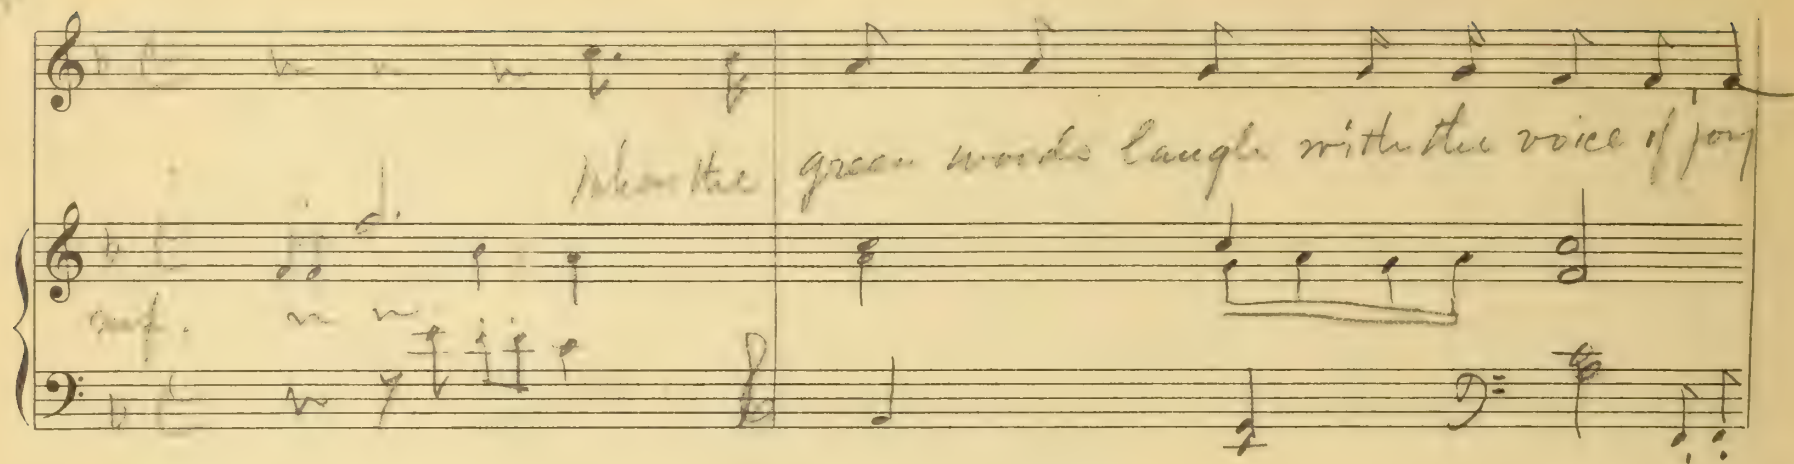 When the green woods laugh with the voice of joy
mf.